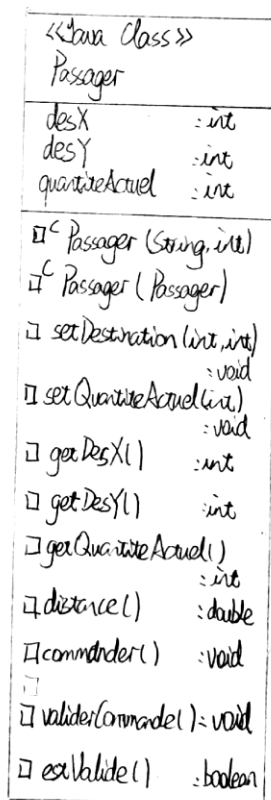 <<Java Class>>
Passager
desX :int
desY :int
quantiteActuel :int
C Passager (String, int)
C Passager (Passager)
setDestination (int, int)
:void
setQuantiteActuel(int)
:void
getDesX() :int
getDesY() :int
getQuantiteActuel()
:int
distance() :double
commander() :void
validerCommande() :void
estValide() :boolean